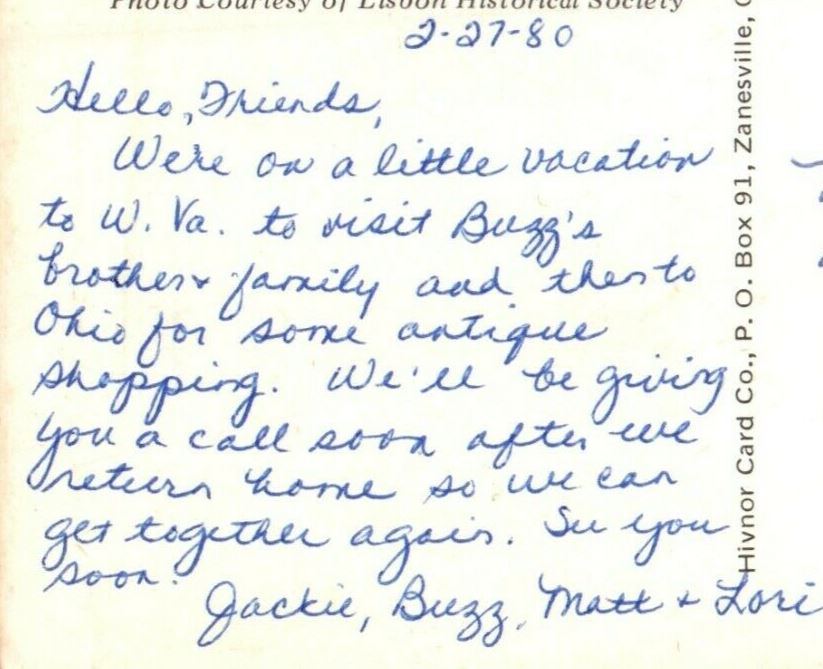 Photo Courtesy of Lisbon Historical Society
2-27-80
Hello, Friends,
We're on a little vacation
to W. Va. to visit Buzz's
brother & family and then to
Ohio for some antique
shopping. We'll be giving
you a call soon after we
return home so we can
get together again. See you
soon.
Jackie, Buzz, Matt & Lori
Hivnor Card Co., P. O. Box 91, Zanesville,